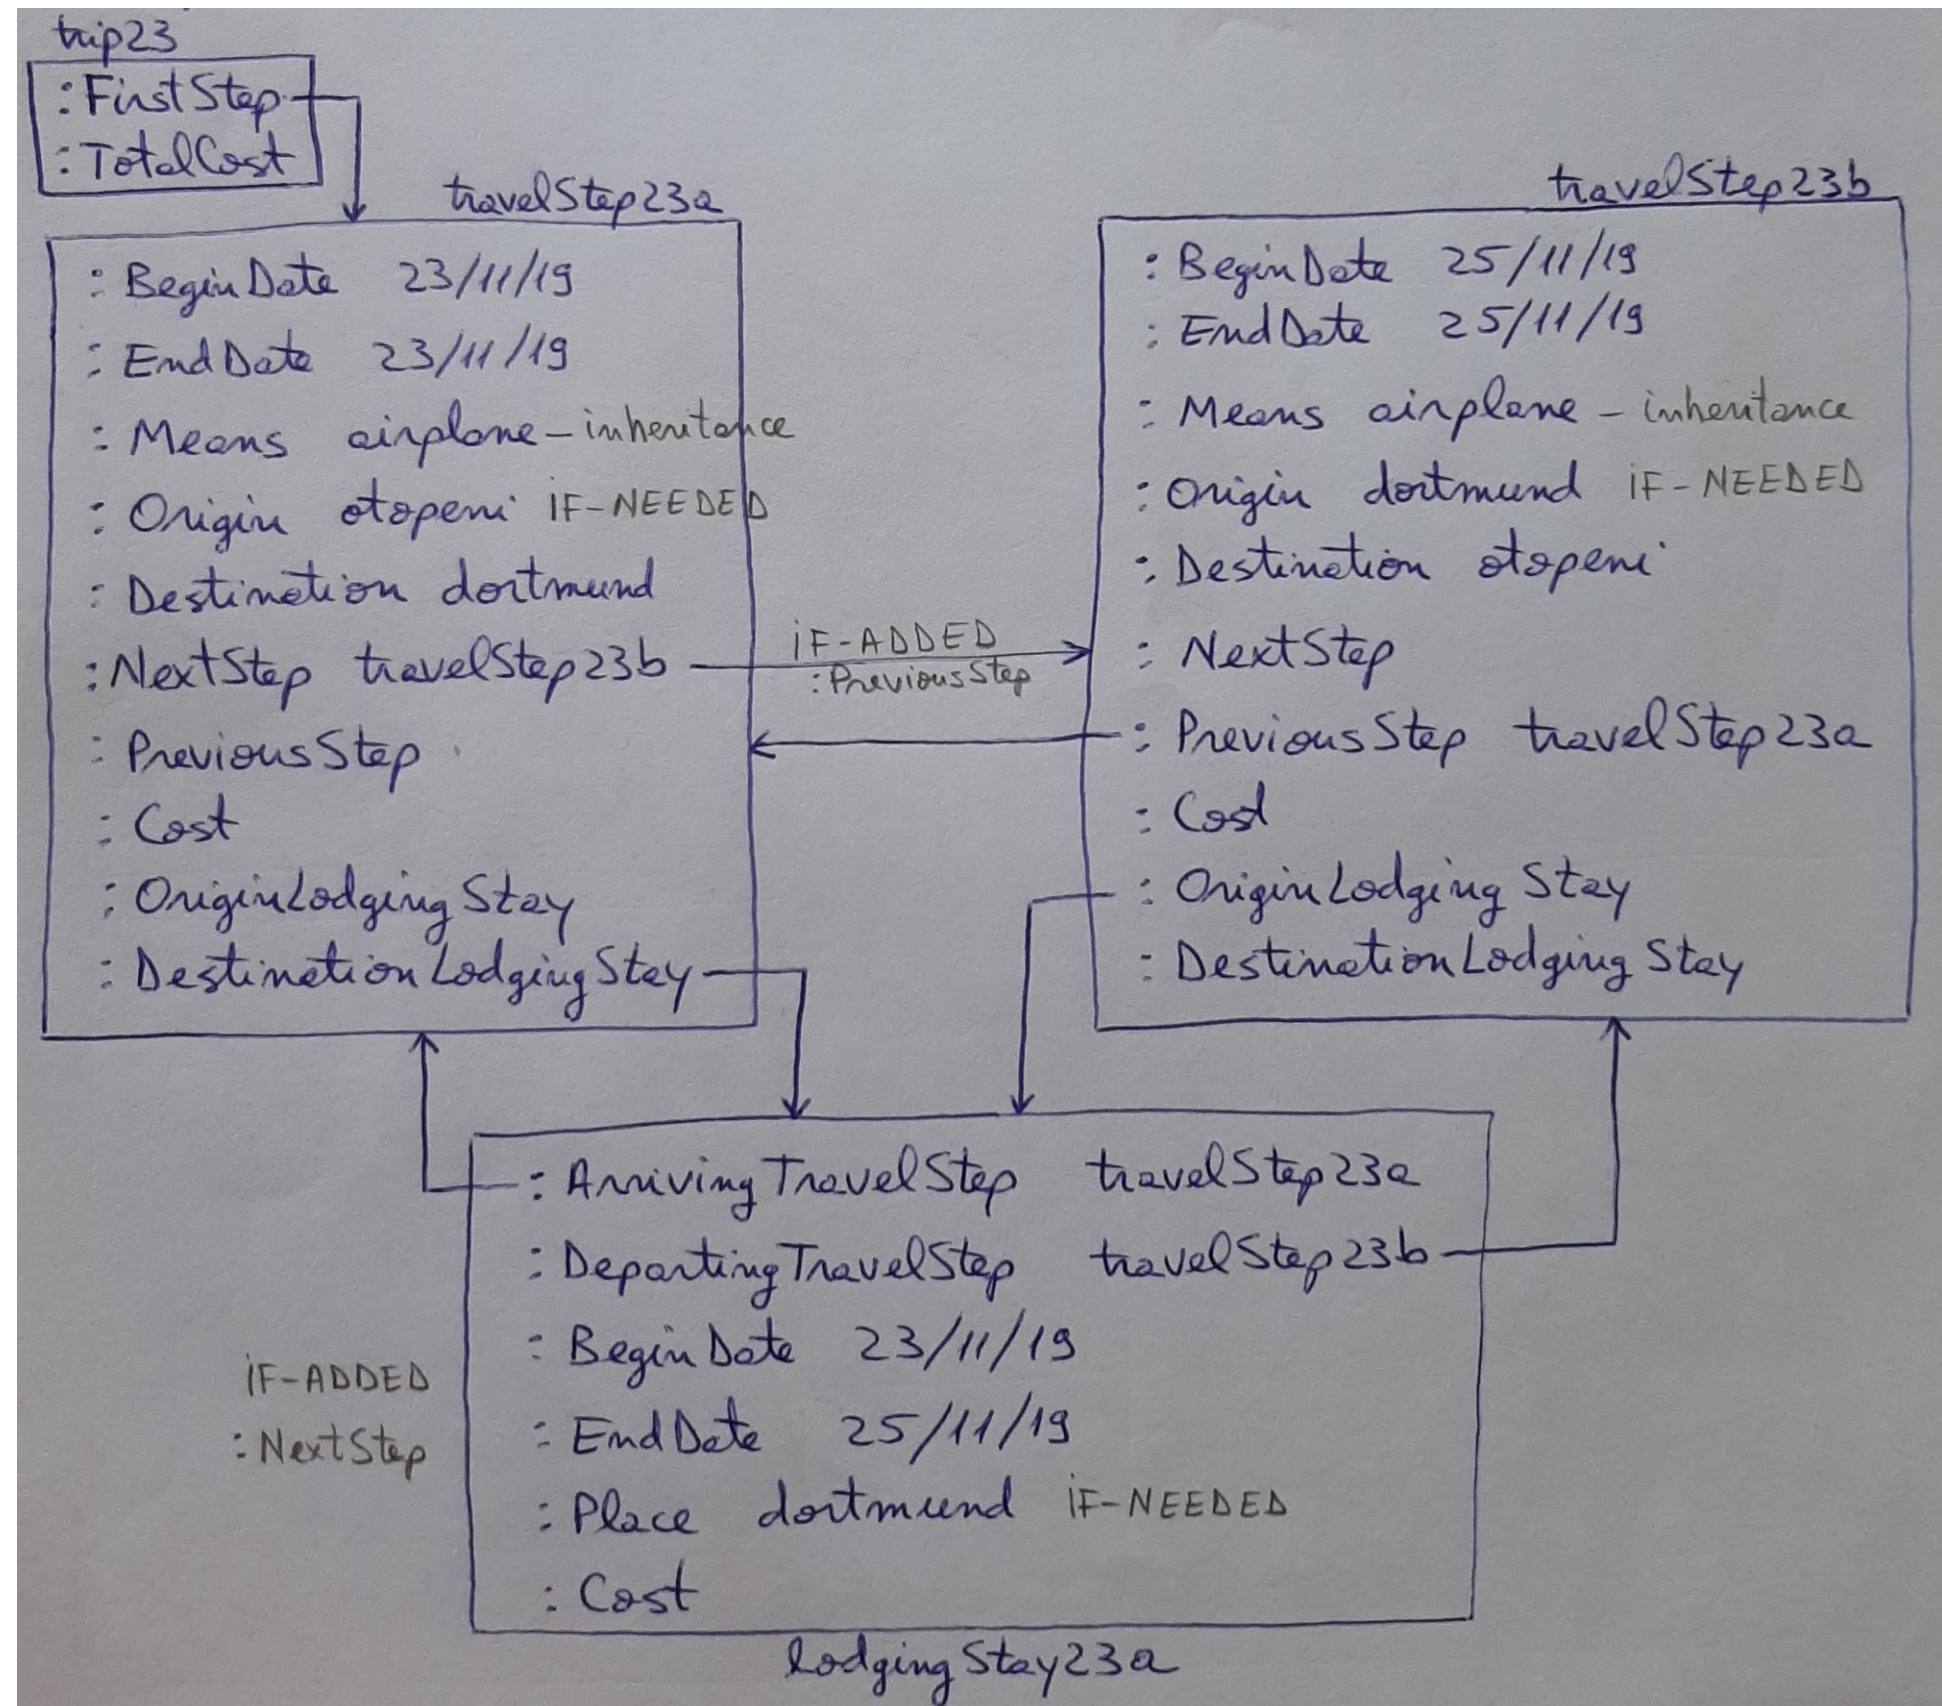 trip23
:FirstStep
:TotalCost
travelStep23a
:BeginDate 23/11/19
:EndDate 23/11/19
:Means airplane - inheritance
:Origin otopeni IF-NEEDED
:Destination dortmund
:NextStep travelStep23b
:PreviousStep
:Cost
:OriginLodgingStay
:DestinationLodgingStay
IF-ADDED
:PreviousStep
travelStep23b
:BeginDate 25/11/19
:EndDate 25/11/19
:Means airplane - inheritance
:Origin dortmund IF-NEEDED
:Destination otopeni
:NextStep
:PreviousStep travelStep23a
:Cost
:OriginLodgingStay
:DestinationLodgingStay
:ArrivingTravelStep travelStep23a
:DepartingTravelStep travelStep23b
:BeginDate 23/11/19
:EndDate 25/11/19
:Place dortmund IF-NEEDED
:Cost
lodgingStay23a
IF-ADDED
:NextStep